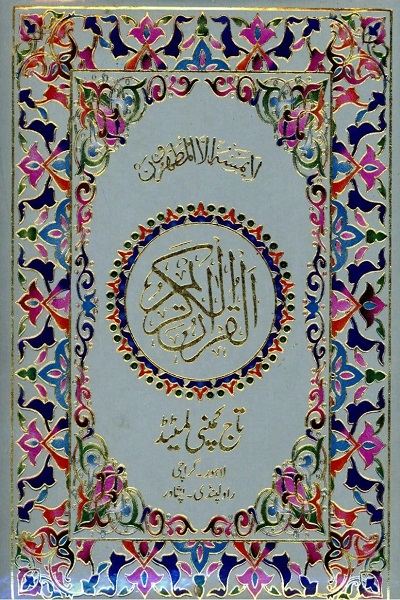 لا يمسه الا المطهرون
القرآن الكريم
تاج کمپنی لمیٹڈ
لاہور - کراچی
راولپنڈی - پشاور